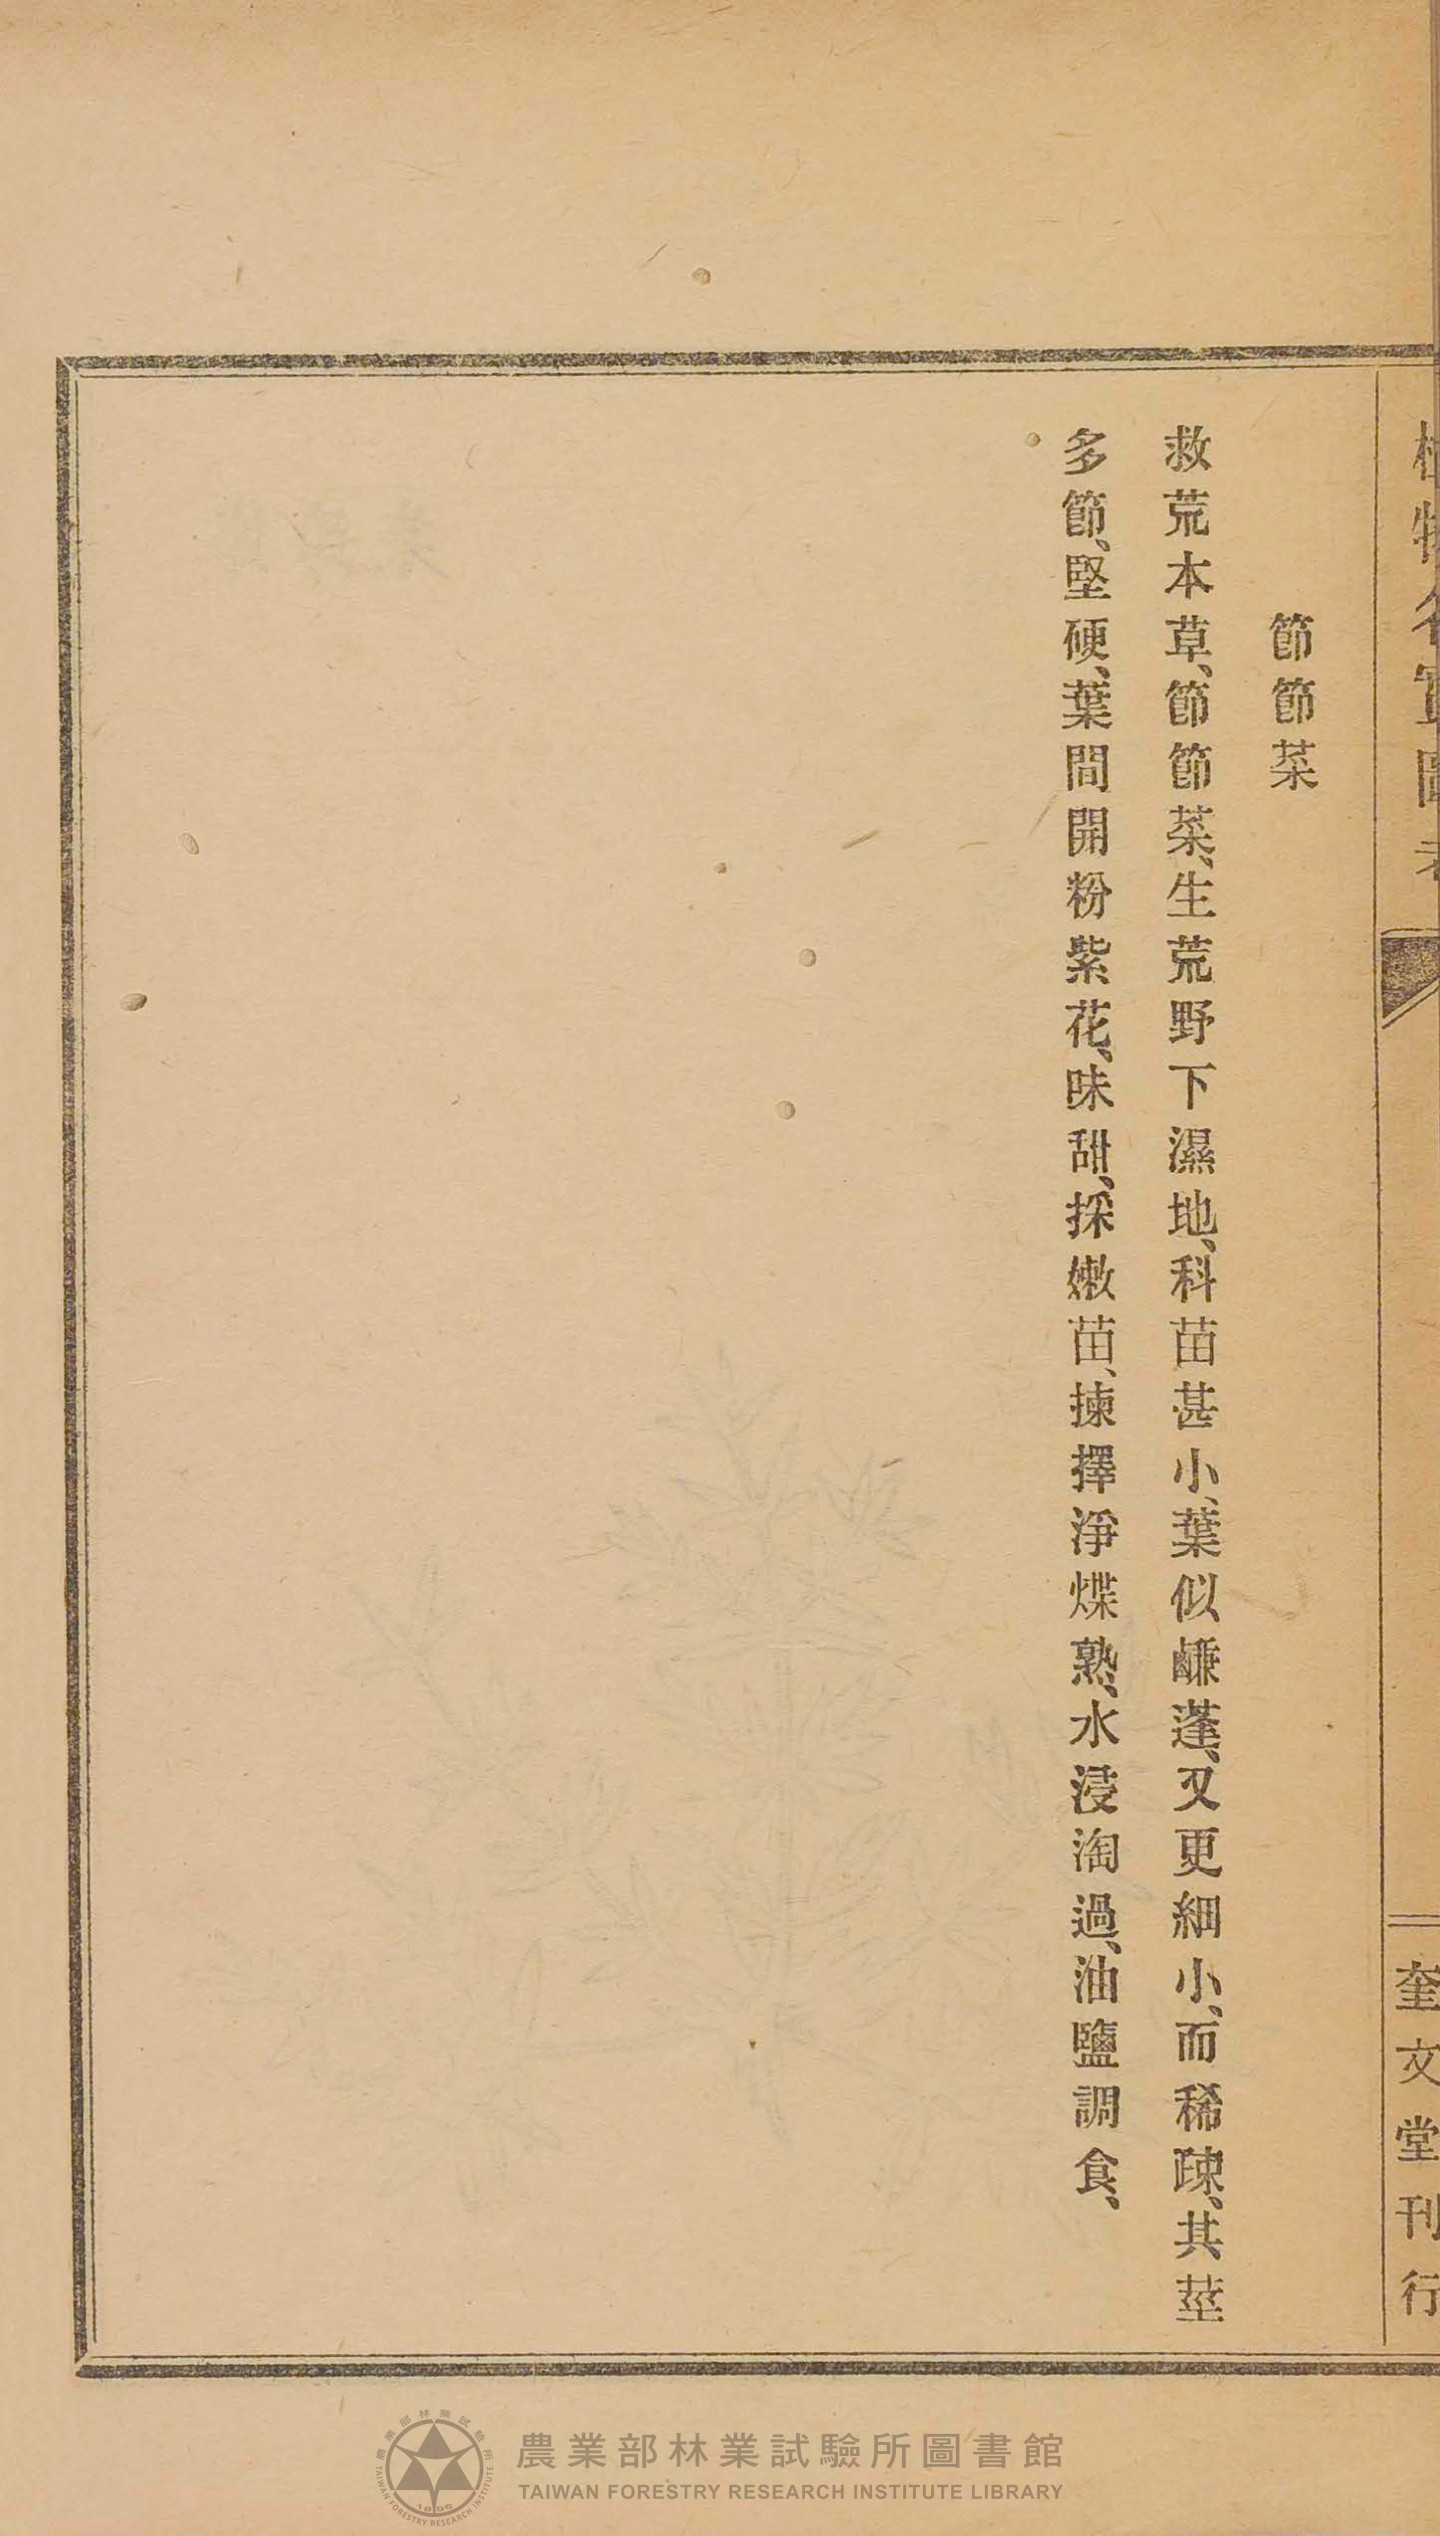 植物名實圖考
奎文堂刊行
節節菜
救荒本草、節節菜、生荒野下濕地、科苗甚小、葉似鹻蓬、又更細小、而稀疎、其莖
多節、堅硬、葉間開粉紫花、味甜、採嫩苗、揀擇淨煠熟、水浸淘過、油鹽調食、
農業部林業試驗所圖書館
TAIWAN FORESTRY RESEARCH INSTITUTE LIBRARY
農業部林業試驗所
TAIWAN FORESTRY RESEARCH INSTITUTE
1895